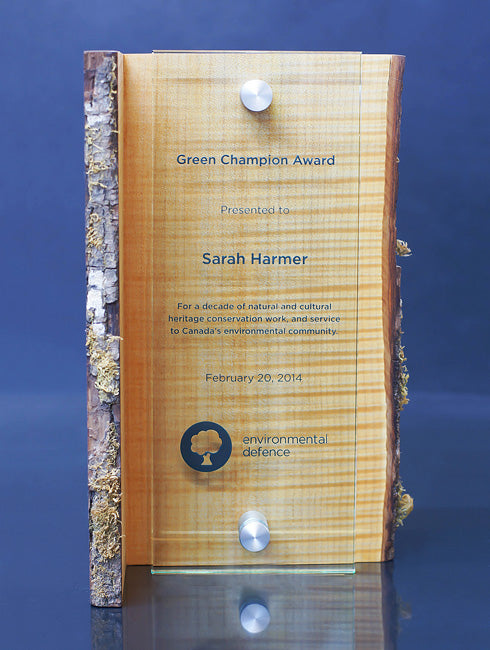 Green Champion Award
Presented to
Sarah Harmer
For a decade of natural and cultural
heritage conservation work, and service
to Canada's environmental community.
February 20, 2014
environmental
defence